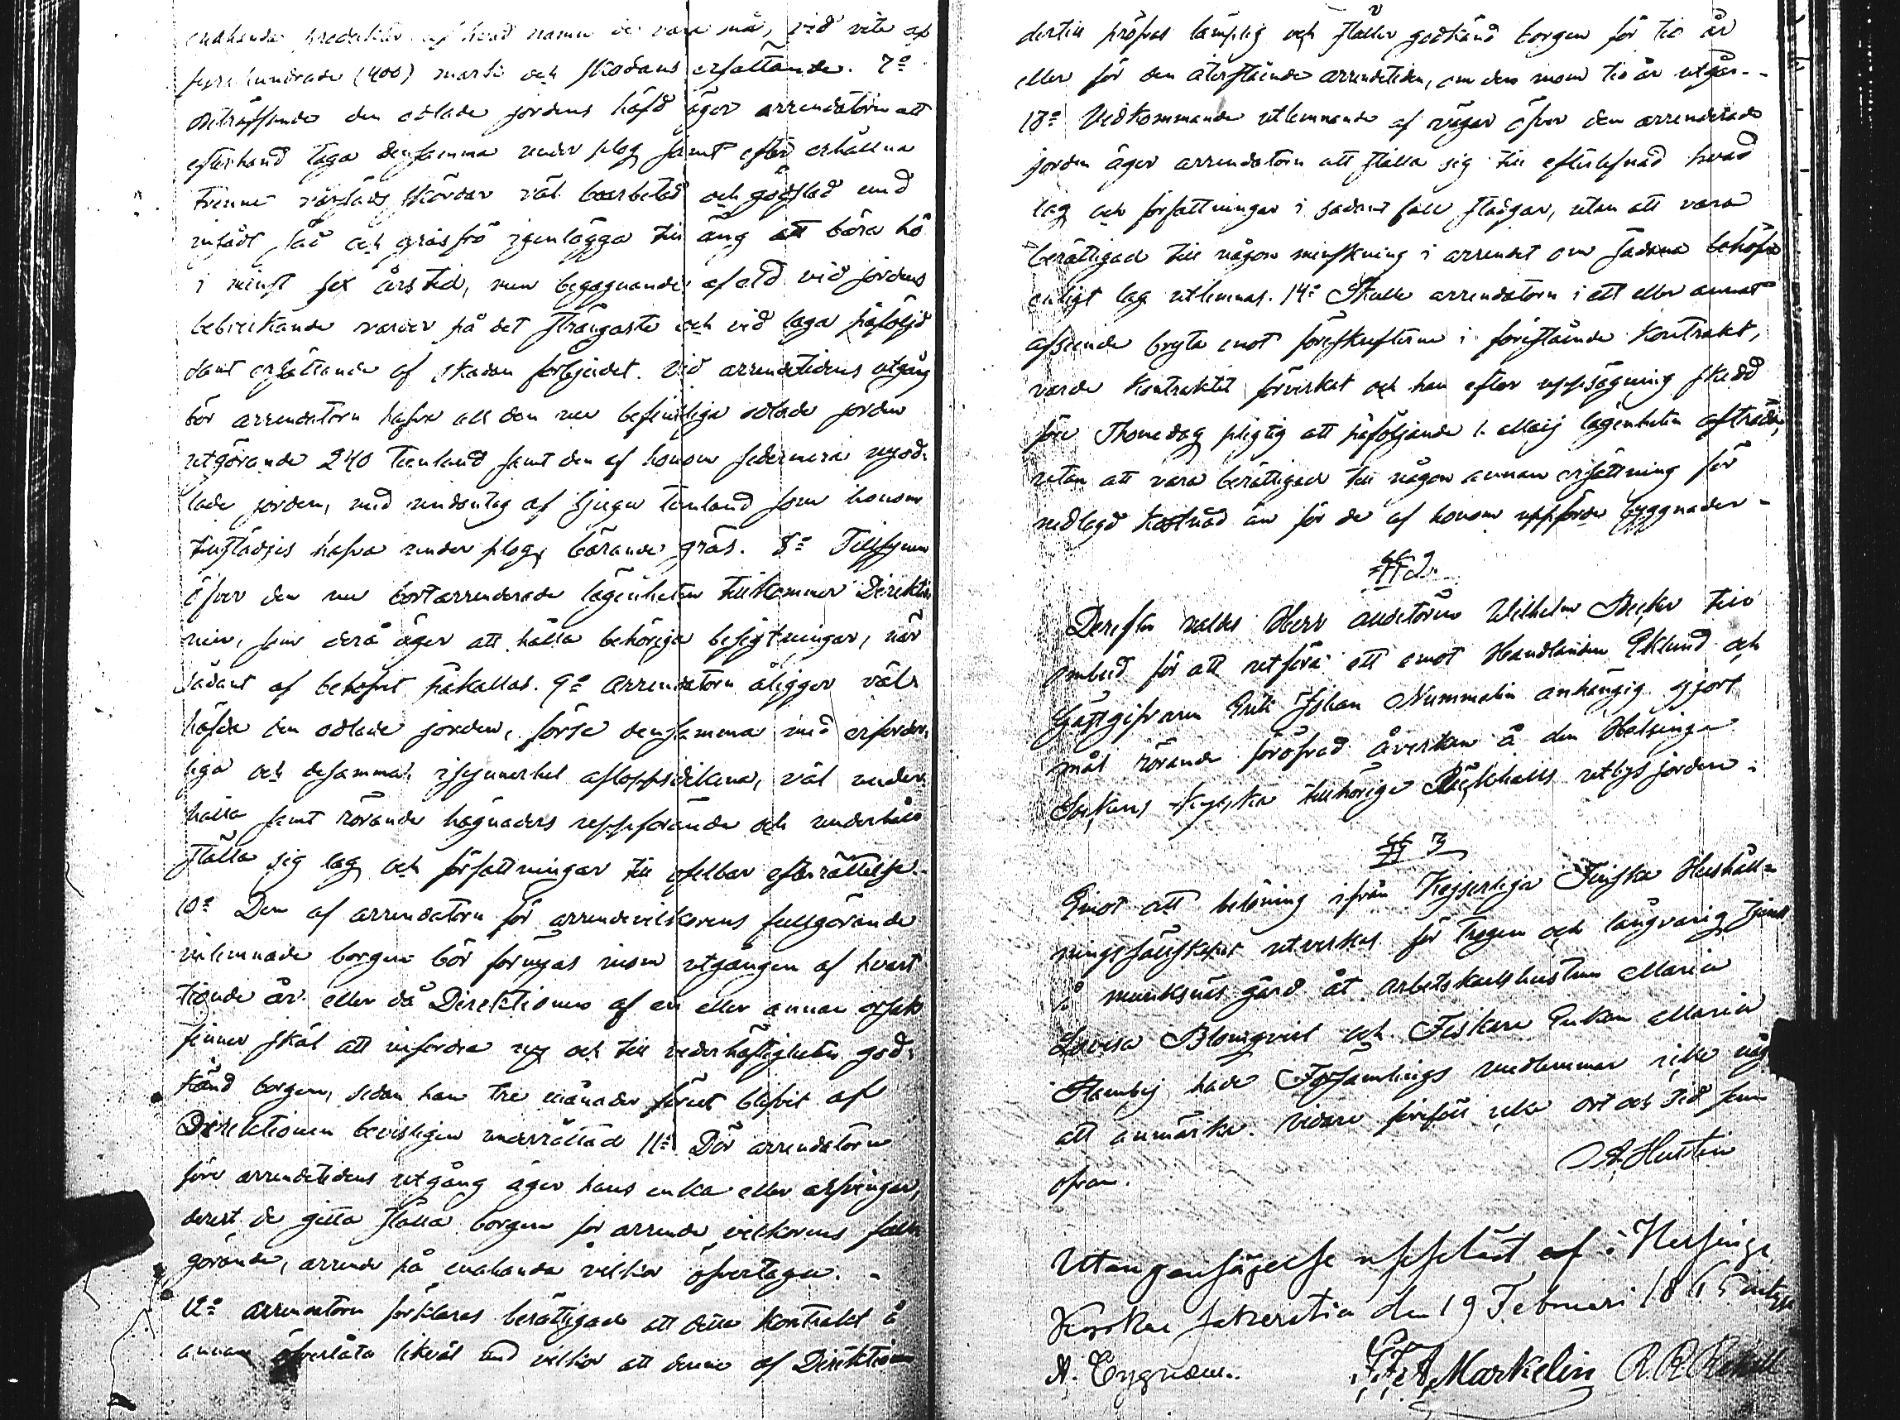 enahanda produkter af hvad namn de vara må, vid vite af
fyrahundrade (400) mark och skadans ersättande. 7o
Beträffande den odlade jordens häfd äger arrendatorn att
efterhand taga densamma under plog samt efter erhållna
trenne särskilda skördar väl bearbetad och gödslad med
insådt säd och gräsfrö igenlägga till äng att bära hö
i minst sex års tid, men begagnande af eld vid jordens
bebrukande varder på det strängaste och vid laga påföljd
samt ersättande af skadan förbjudet. Vid arrendetidens utgång
bör arrendatorn hafva all den nu befintliga odlade jorden
utgörande 240 Tunland samt den af honom sedermera upod-
lade jorden, med undantag af tjugu tunland som honom
tillstädjes hafva under plog, bärande gräs. 8o Tillsynen
öfver den nu bortarrenderade lägenheten tillkommer Direktio
nen, som derå äger att hålla behöriga besigtningar, när
sådant af behofvet påkallas. 9o Arrendatorn åligger väl
häfda den odlade jorden, förse densamma med erforder-
liga och desamma, isynnerhet afloppsdikena, väl under-
hålla samt rörande hägnaders uppförande och underhåll
ställa sig lag och författningar till ofelbar efterrättelse.
10o Den af arrendatorn för arrendevilkorens fullgörande
inlemnade borgen bör förnyas inom utgången af hvart
tionde år eller då Direktionen af en eller annan orsak
finner skäl att infordra ny och till vederhäftigheten god-
känd borgen, sedan han tre månader förut blifvit af
Direktionen bevisligen underrättad 11o Dör arrendatorn
före arrendetidens utgång äger hans enka eller arfvingar,
derest de gitta ställa borgen för arrende vilkorens full-
görande, arrende på enahanda vilkor öfvertaga.
12o Arrendatorn förklaras berättigad att detta kontrakt å
annan öfverlåta likväl med vilkor att denne af Direktionen
dertill pröfvas lämplig och ställer godkänd borgen för tio år
eller för den återstående arrendetiden, om den inom tio år utgår.
13o Vidkommande utlemnande af vägar öfver den arrenderade
jorden äger arrendatorn att ställa sig till efterlefnad hvad
lag och författningar i sådant fall stadgar, utan att vara
berättigad till någon minskning i arrendet om sådana behöfva
enligt lag utlemnas. 14o Skulle arrendatorn i ett eller annat
afseende bryta emot föreskrifterna i förestående kontrakt,
varde kontraktet förverkat och han efter uppsägning skedd
före Thomedag pligtig att påföljande 1 Maij lägenheten afträda,
utan att vara berättigad till någon annan ersättning för
nedlagd kostnad än för de af honom uppförde byggnader.
§ 2.
Derefter valdes Herr Auditören Wilhelm till
ombud för att utföra ett emot Handlanden Eklund och
Gästgifvaren Erik Johan Nummelin anhängig gjort
mål rörande föröfvad åverkan å den Helsinge
Sockens Kyrka tillhöriga Bäckhalls utbys jorden.
§ 3
Emot att belöning ifrån Kejserliga Finska Hushåll-
ningssällskapet utverkas för trogen och långvarig tjenst
å Munksnäs gård åt Arbetskarlshustrun Maria
Lovisa Blomqvist och Fiskare Enkan Maria
Stenberg hade Församlings medlemmar icke något
att anmärka. Vidare föreföll icke ort och tid som
ofvan. A. Hutstin
Utan gensägelse uppläst af i Helsinge
Kyrkas sakerstia den 19 Februari 1865 intyga
A. F. F. A. Markelin R. R.